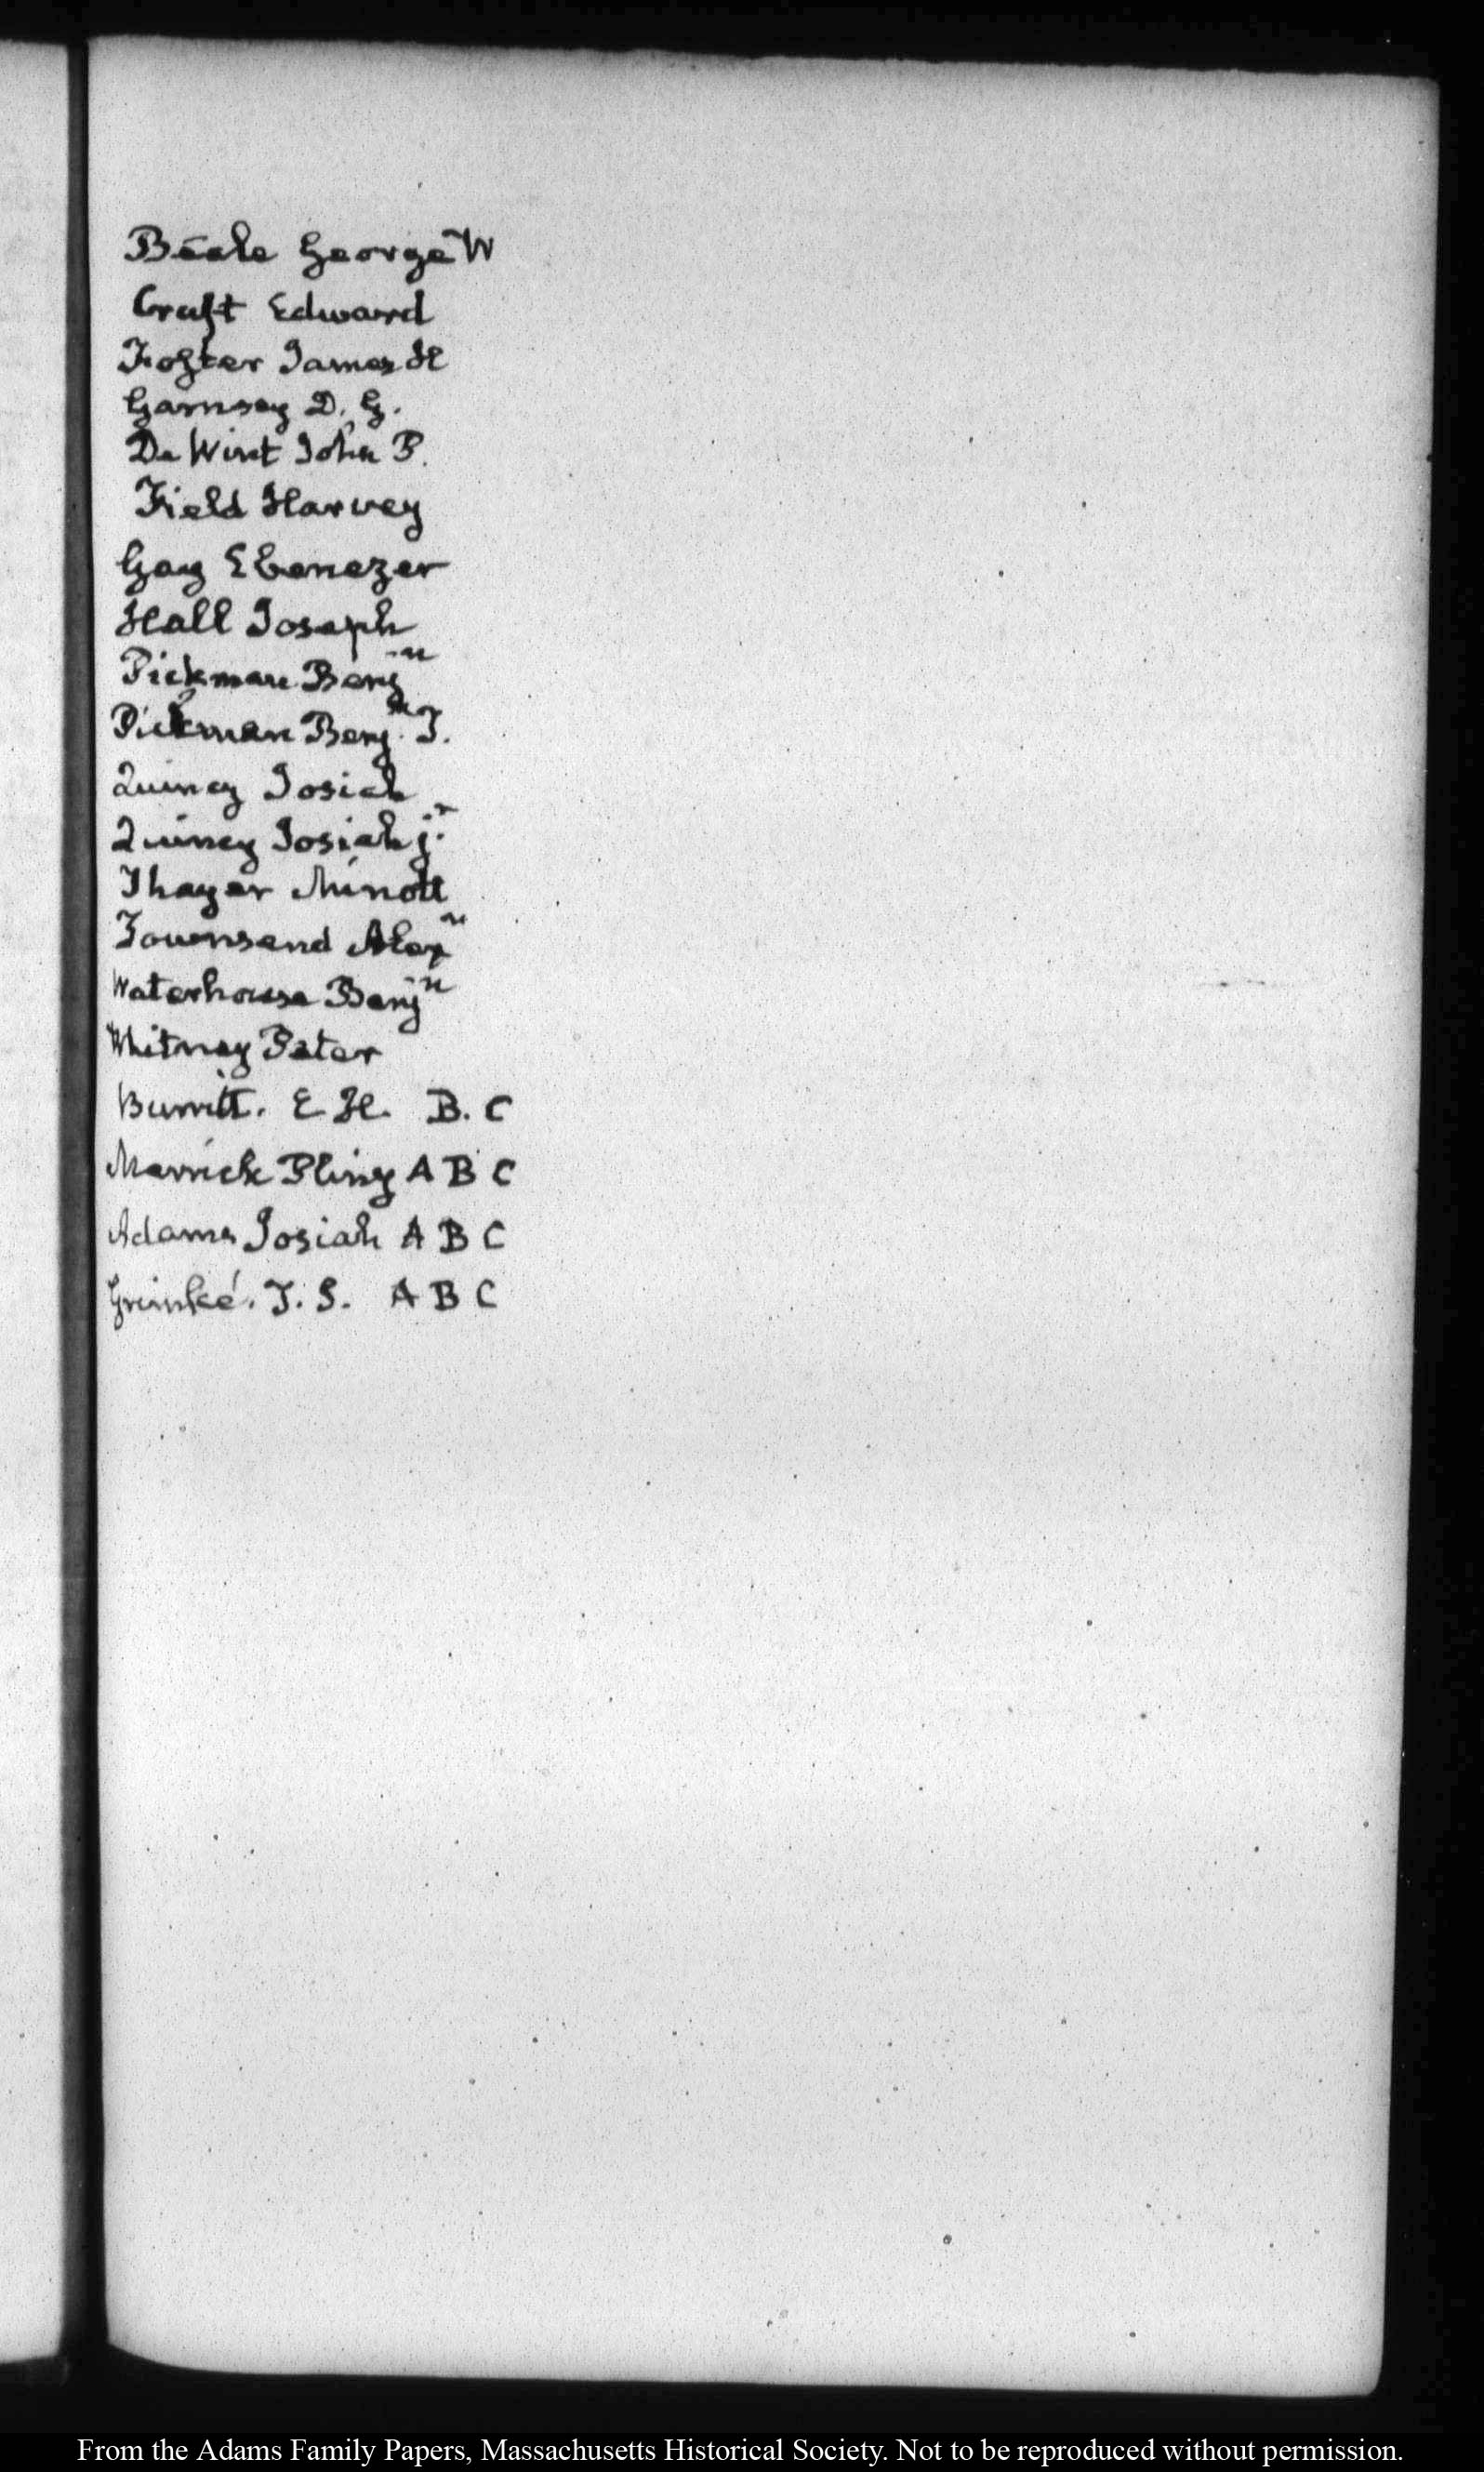 Beale George W
Craft Edward
Foster James H
Garnsey D. G.
De Wint John P.
Field Harvey
Gay Ebenezer
Hall Joseph
Pickman Benjn
Pickman Benjn T.
Quincy Josiah
Quincy Josiah jr
Thayer Minott
Townsend Alexr
Waterhouse Benjn
Whitney Peter
Burritt. E H. B. C
Merrick Pliny A B C
Adams Josiah A B C
Grimké. T. S. A B C
From the Adams Family Papers, Massachusetts Historical Society. Not to be reproduced without permission.